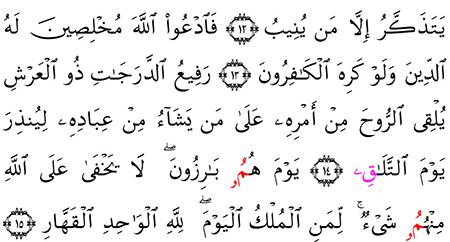 يَتَذَكَّرُ إِلَّا مَن يُنِيبُ ١٢ فَٱدْعُوا۟ ٱللَّهَ مُخْلِصِينَ لَهُ
ٱلدِّينَ وَلَوْ كَرِهَ ٱلْكَٰفِرُونَ ١٣ رَفِيعُ ٱلدَّرَجَٰتِ ذُو ٱلْعَرْشِ
يُلْقِى ٱلرُّوحَ مِنْ أَمْرِهِۦ عَلَىٰ مَن يَشَآءُ مِنْ عِبَادِهِۦ لِيُنذِرَ
يَوْمَ ٱلتَّلَاقِۦ ١٤ يَوْمَ هُمُۥ بَٰرِزُونَۖ لَا يَخْفَىٰ عَلَى ٱللَّهِ
مِنْهُمُۥ شَىْءٌۚ لِّمَنِ ٱلْمُلْكُ ٱلْيَوْمَۖ لِلَّهِ ٱلْوَٰحِدِ ٱلْقَهَّارِ ١٥